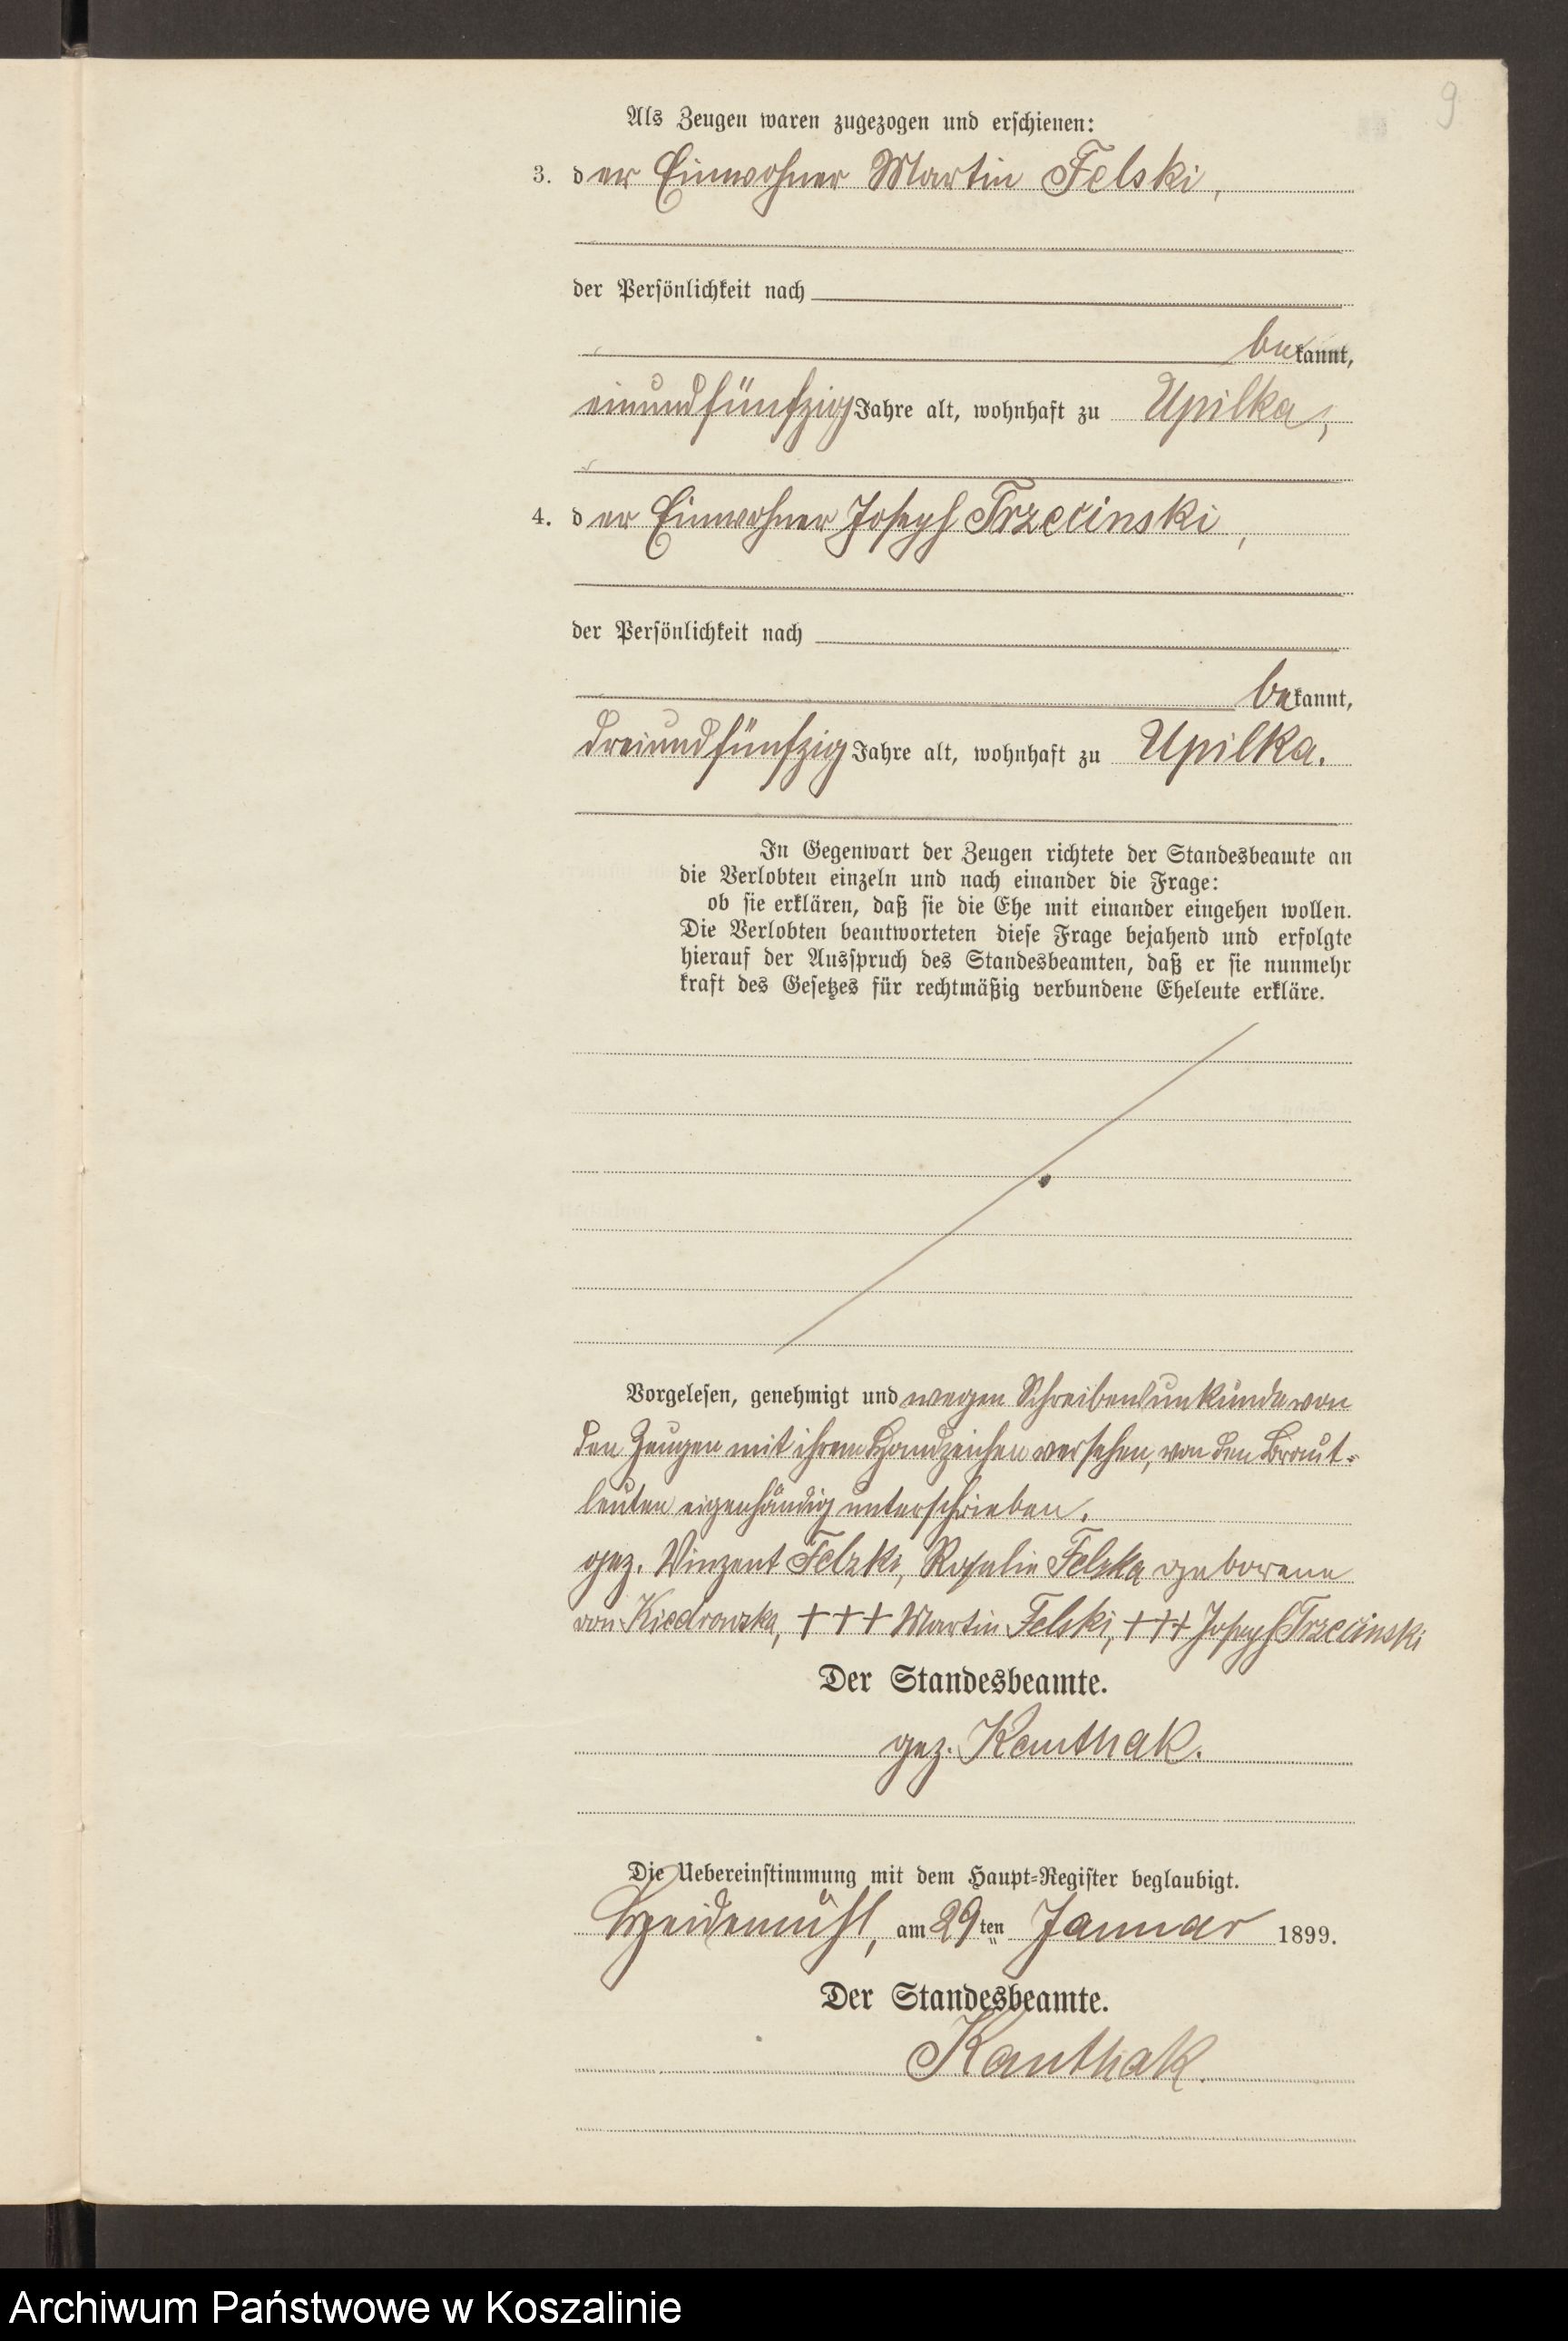 9
Als Zeugen waren zugezogen und erschienen:
3. der Einwohner Martin Felski,
der Persönlichkeit nach
bekannt,
einundfünfzig Jahre alt, wohnhaft zu Upilka,
4. der Einwohner Joseph Trzecinski,
der Persönlichkeit nach
bekannt,
dreiundfünfzig Jahre alt, wohnhaft zu Upilka.
In Gegenwart der Zeugen richtete der Standesbeamte an
die Verlobten einzeln und nach einander die Frage:
ob sie erklären, daß sie die Ehe mit einander eingehen wollen.
Die Verlobten beantworteten diese Frage bejahend und erfolgte
hierauf der Ausspruch des Standesbeamten, daß er sie nunmehr
kraft des Gesetzes für rechtmäßig verbundene Eheleute erkläre.
Vorgelesen, genehmigt und wegen Schreibensunkunde von
den Zeugen mit ihrem Handzeichen versehen, von den Braut-
leuten eigenhändig unterschrieben.
gez. Vinzent Felski, Rosalie Felska geborene
von Kiedrowska, +++ Martin Felski, +++ Joseph Trzecinski
Der Standesbeamte.
gez. Kanthak.
Die Uebereinstimmung mit dem Haupt-Register beglaubigt.
Heidemühl, am 29ten Januar 1899.
Der Standesbeamte.
Kanthak.
Archiwum Państwowe w Koszalinie